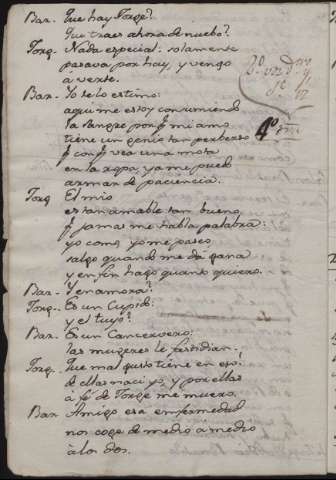 Bar. Que hay Torge?
Que traes ahora de nuebo?
Torg. Nada especial: solamente
pasava por hay, y vengo
a verte.
Bar. Yo te lo estimo:
aqui me estoy consumiendo
la sangre porq. mi amo
tiene un genio tan perberso
q. conq. vea una mota
en la ropa, ya me puedo
armar de paciencia.
Torg El mio
es tan amable tan bueno
q. jamas me habla palabra:
yo como, yo me paseo
salgo quando me dá gana
y en fin hago quanto quiero.
Bar. Y enamora?
Torg. Es un Cupido:
y el tuyo?
Bar. Es un Cancervero:
las mugeres le fastidian.
Torg. Que mal gusto tiene en eso!
de ellas nací yo, y por ellas
á fé de Torge me muero.
Bar. Amigo esa enfermedad
nos coge de medio á medio
á los dos.
4º